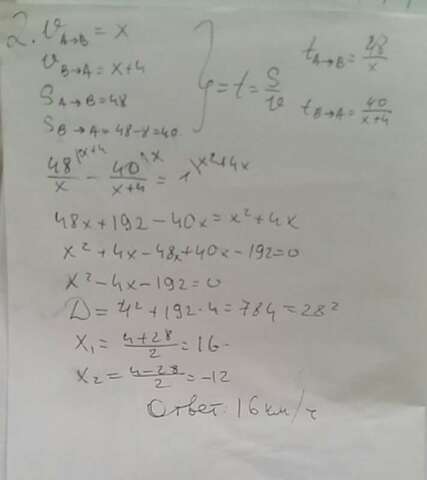 2. v A→B = x
v B→A = x+4
S A→B = 48
S B→A = 48-8=40
} = t = S/v
t A→B = 48/x
t B→A = 40/(x+4)
48/x |x+4 - 40/(x+4) |x = 1 |x²+4x
48x+192-40x=x²+4x
x²+4x-48x+40x-192=0
x²-4x-192=0
D=4²+192·4=784=28²
x₁=(4+28)/2=16
x₂=(4-28)/2=-12
Ответ: 16 км/ч